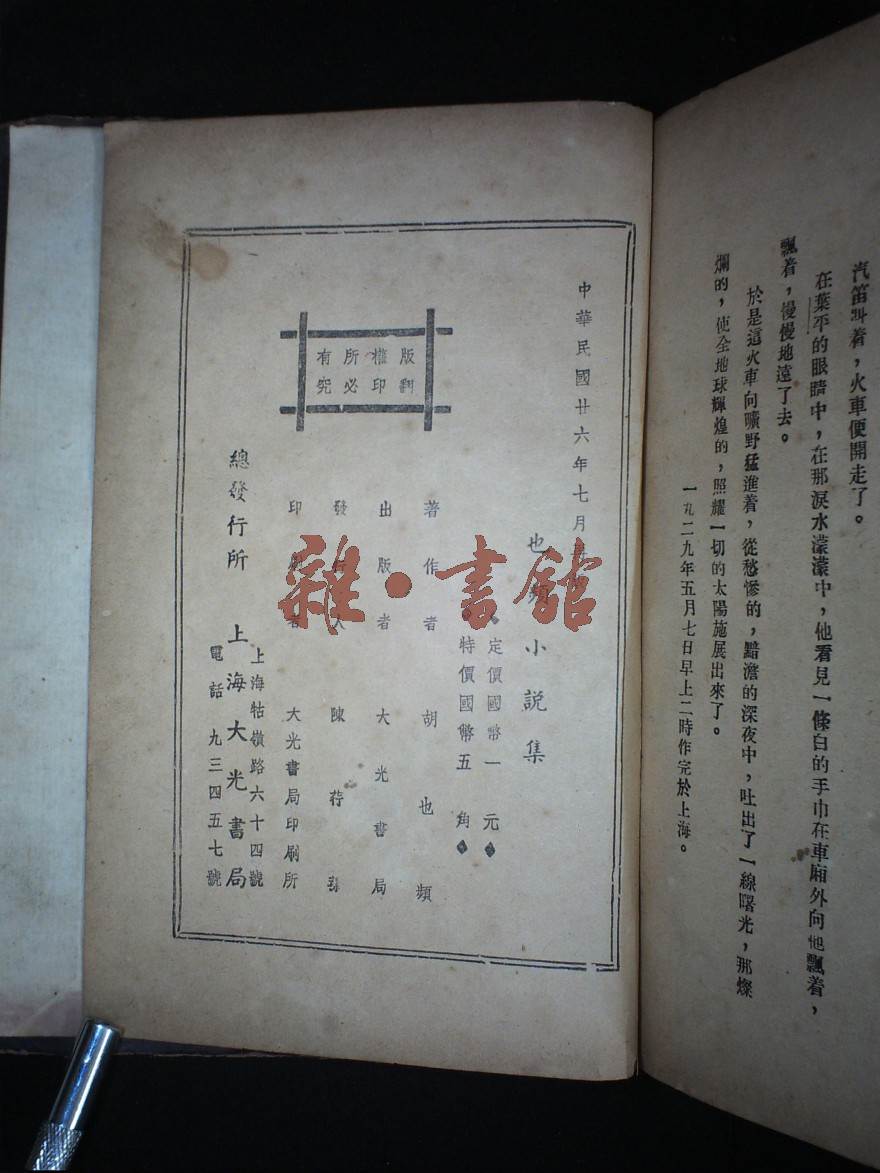 汽笛叫着，火車便開走了。
在葉平的眼睛中，在那淚水濛濛中，他看見一條白的手巾在車廂外向他飄着，
飄着，慢慢地遠了去。
於是這火車向曠野猛進着，從愁慘的，黯澹的深夜中，吐出了一線曙光，那燦
爛的，使全地球輝煌的，照耀一切的太陽施展出來了。
一九二九年五月七日早上二時作完於上海。
中華民國廿六年七月
也頻小說集
定價國幣一元
特價國幣五角
著作者 胡也頻
出版者 大光書局
發行人 陳荇蓀
印刷者 大光書局印刷所
版權所有
翻印必究
總發行所 上海大光書局
上海牯嶺路六十四號
電話 九三四五七號
雜·書館